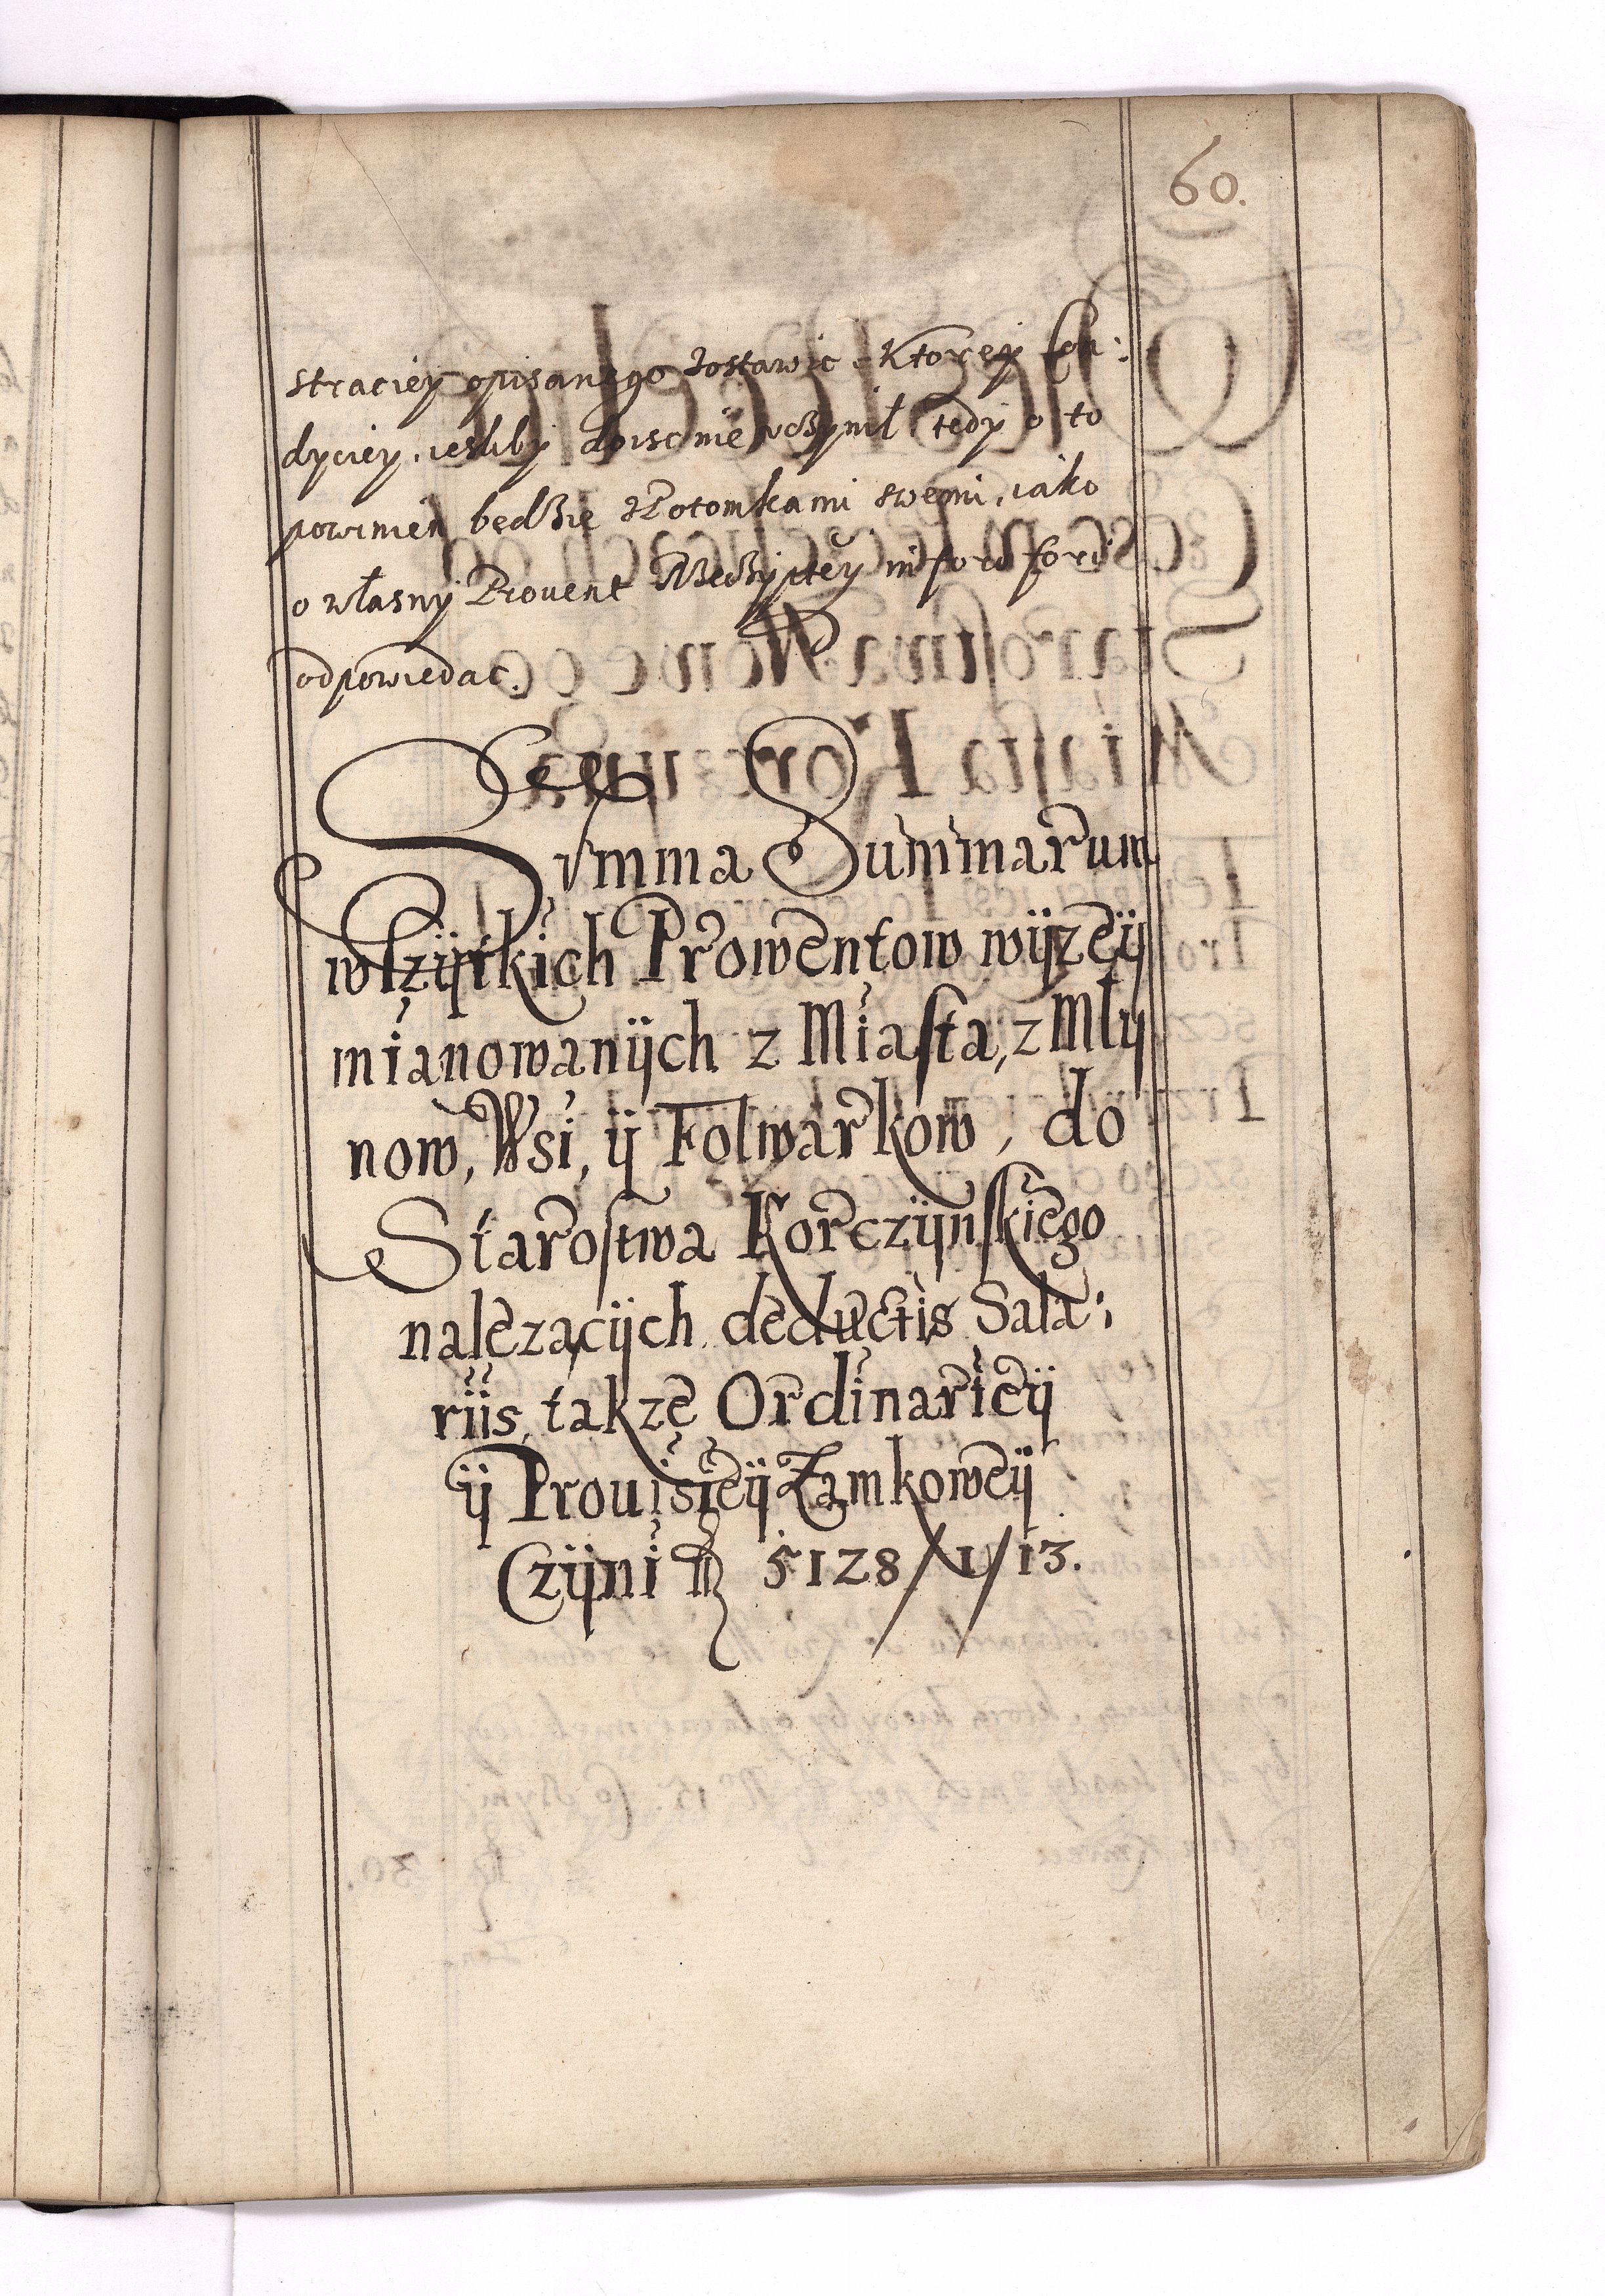 60.
straciey opisanego zostawic. Ktorey Con:
dyciey, iesliby dosic nie uczynił tedy o to
powinien będzie z Potomkami swemi, iako
o własny Prouent Rzeczyptey in foro fori
odpowiedac.
Summa Summarum
wszijtkich Prowentow wijzeij
mianowanijch z Miasta, z Mlij
now, Wsi, ij Folwarkow, do
Starostwa Korczijnskiego
nalezącijch deductis Sala:
riis, takze Ordinarieij
ij Prouisieij Zamkoweij
Czijni fl 5128/1/13.